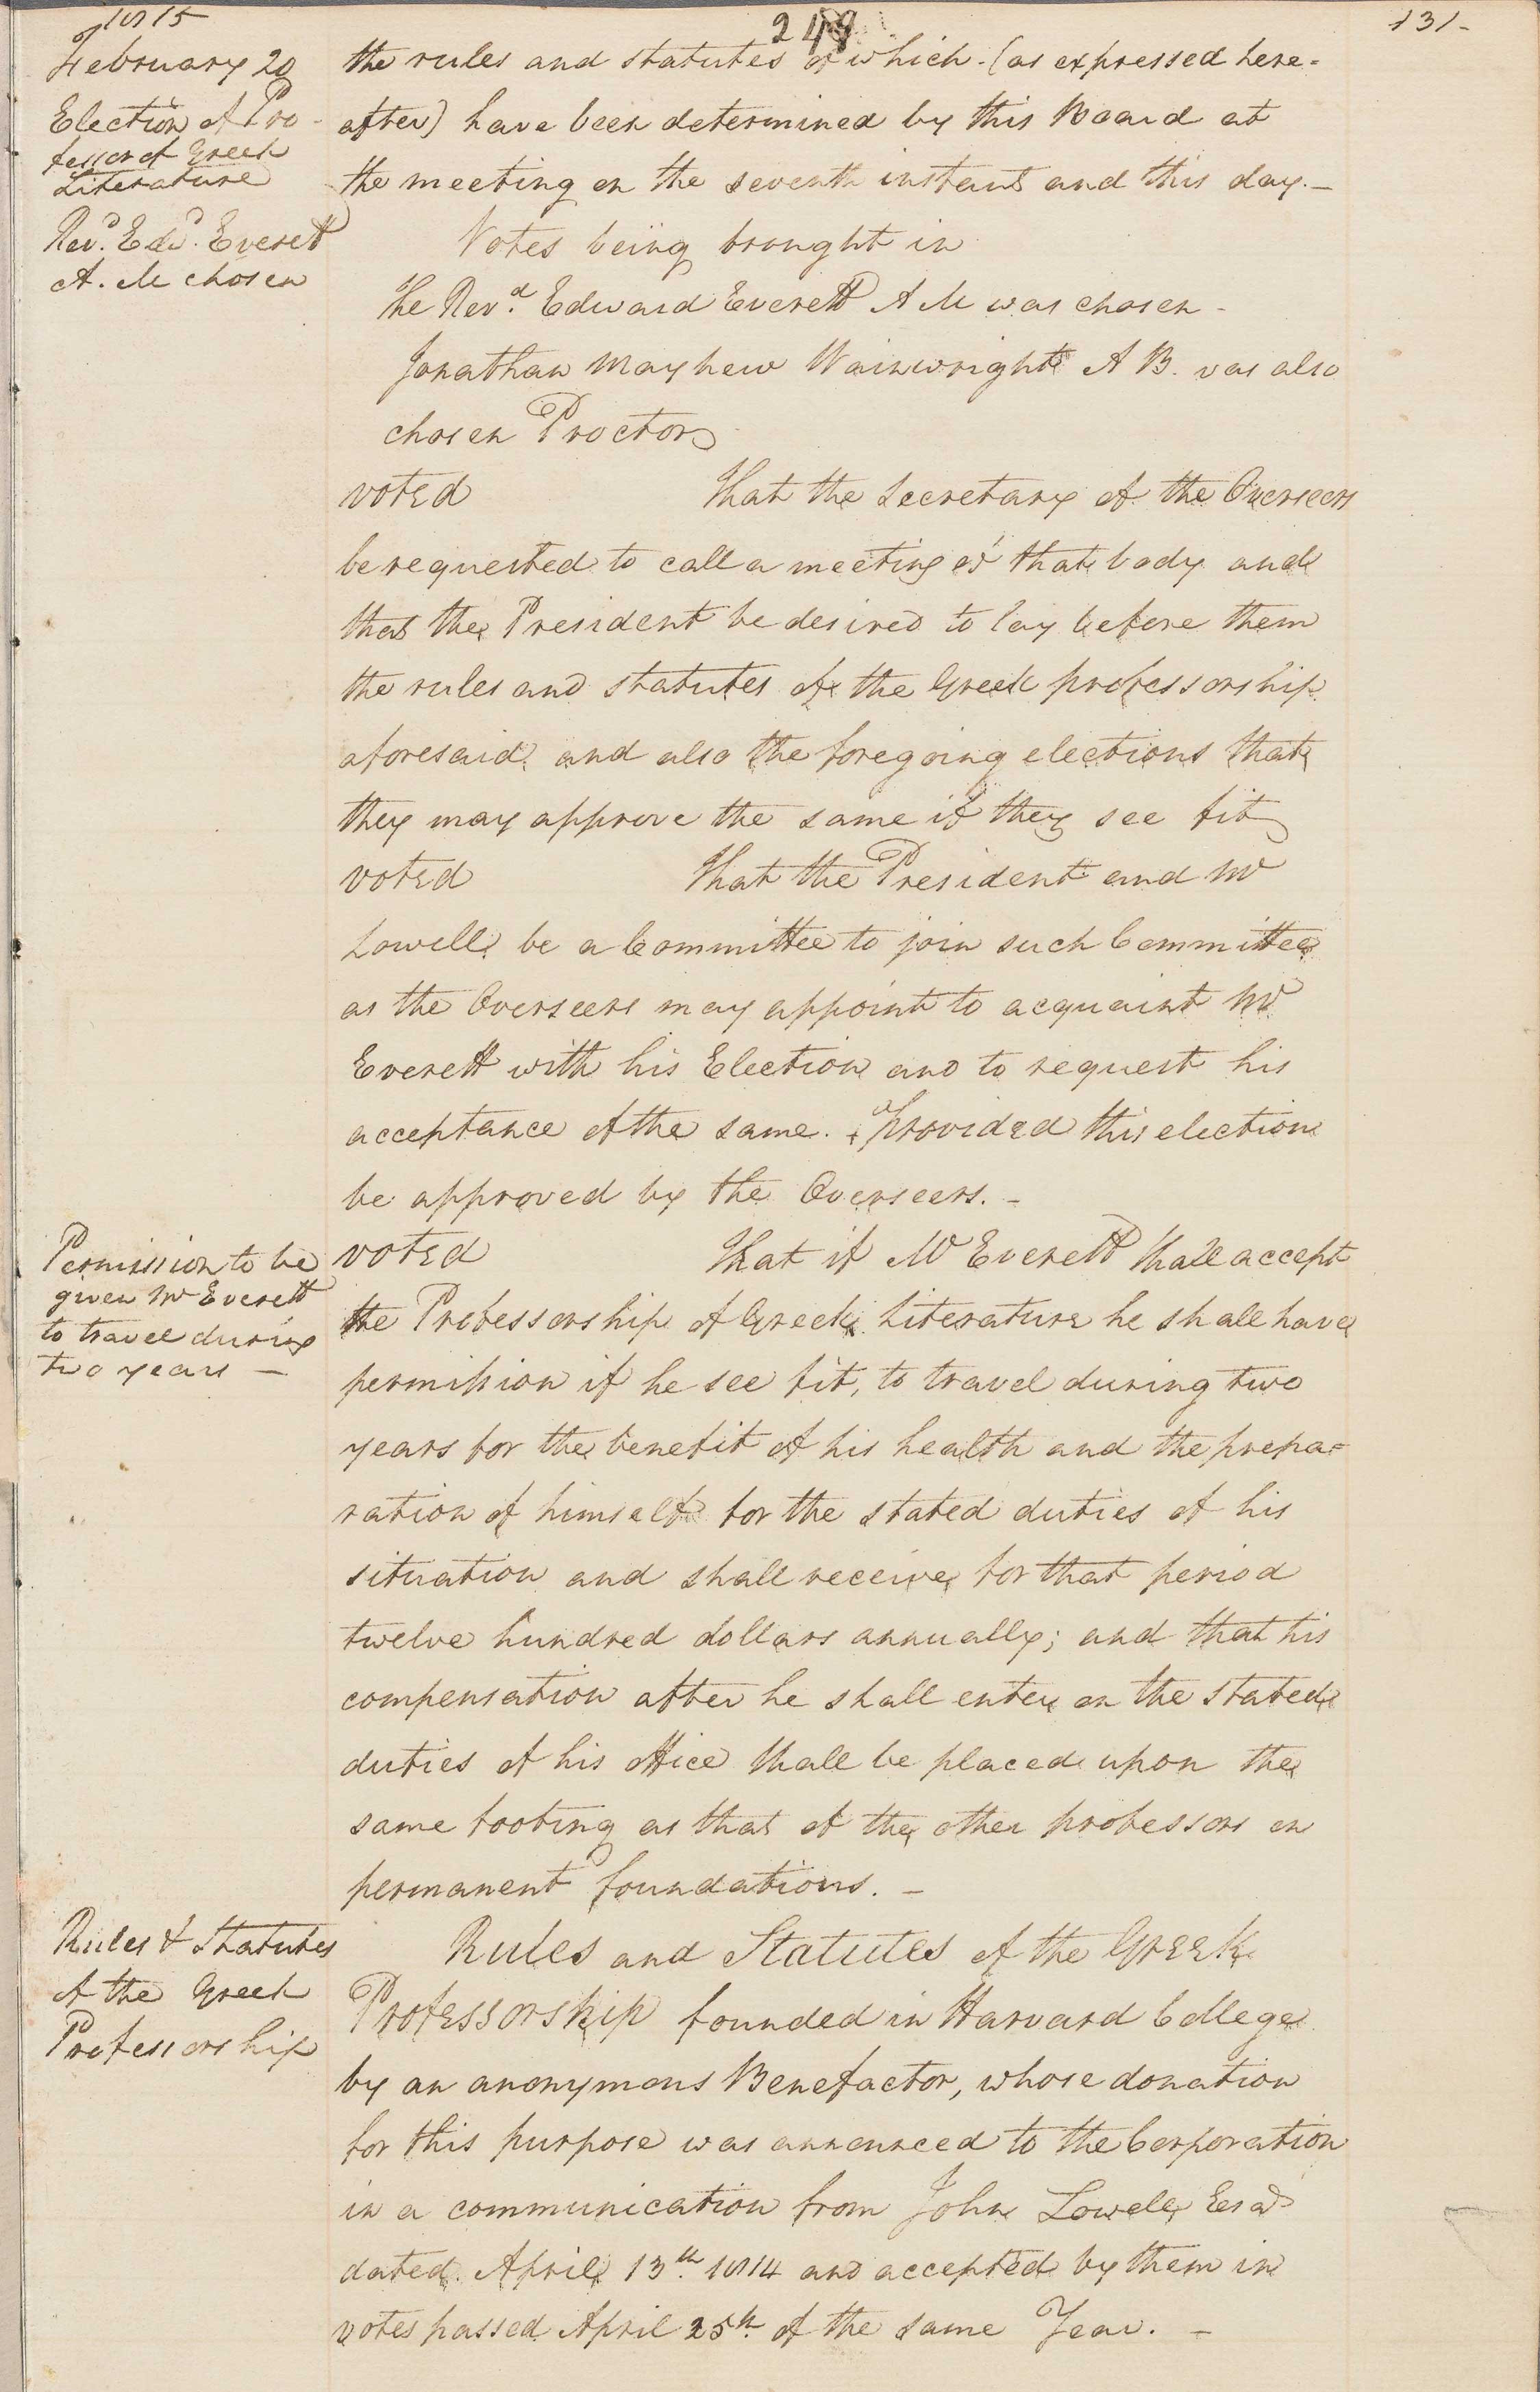 1815
248
131-
February 20
Election of Pro-
fessor of Greek
Literature
Revd. Edwd. Everett
A. M chosen
the rules and statutes of which (as expressed here-
after) have been determined by this Board at
the meeting on the seventh instant and this day.—
Votes being brought in
The Revd. Edward Everett A M was chosen-
Jonathan Mayhew Wainwright A B. was also
chosen Proctor
Voted That the Secretary of the Overseers
be requested to call a meeting of that body and
that the President be desired to lay before them
the rules and statutes of the Greek professorship
aforesaid, and also the foregoing elections that
they may approve the same if they see fit
Voted That the President and Mr
Lowell be a Committee to join such Committee
as the Overseers may appoint to acquaint Mr
Everett with his Election and to request his
acceptance of the same. provided this election
be approved by the Overseers. –
Permission to be
given Mr Everett
to travel during
two years —
Voted That if Mr Everett shall accept
the Professorship of Greek Literature he shall have
permission if he see fit, to travel during two
years for the benefit of his health and the prepa=
ration of himself for the stated duties of his
situation and shall receive for that period
twelve hundred dollars annually; and that his
compensation after he shall enter on the stated
duties of his office shall be placed upon the
same footing as that of the other professors on
permanent foundations. –
Rules & Statutes
of the Greek
Professorship
Rules and Statutes of the Greek
Professorship founded in Harvard College
by an anonymous Benefactor, whose donation
for this purpose was announced to the Corporation
in a communication from John Lowell, Esq
dated April 13th. 1814 and accepted by them in
votes passed April 25th. of the same Year. –